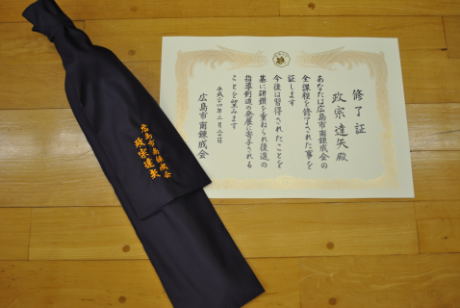 修了証
政宗達矢殿
あなたは広島市南錬成会の
全課程を修了された事を
証します
今後は習得されたことを
基に研鑽を重ねられ後進の
指導剣道の発展に寄与される
ことを望みます
広島市南錬成会
広島市南錬成会
政宗達矢